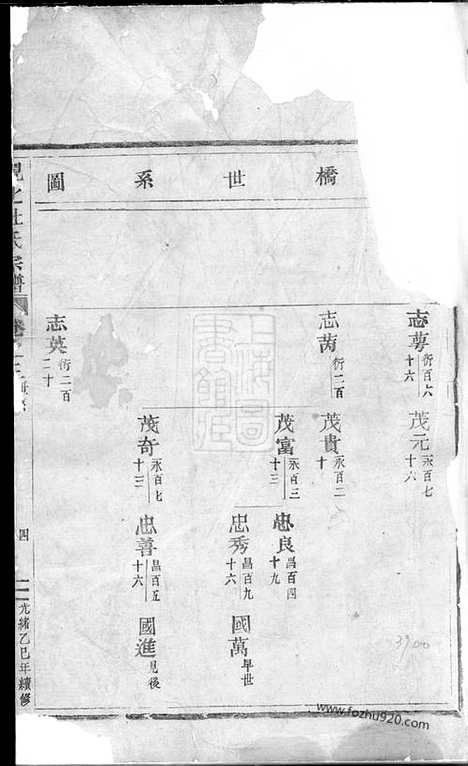 橋世系圖
志蓴 衍百六十六
茂元 永百七十六
志茵 衍二百
茂貴 永百二十
茂富 永百三十三
忠良 昌百四十九
忠秀 昌百九十六
國萬 早世
茂奇 永百七十三
忠善 昌百五十六
國進 見後
志英 衍二百二十
杜氏宗譜
四
光緒乙巳年續修
上海圖書館藏
www.fozhu920.com